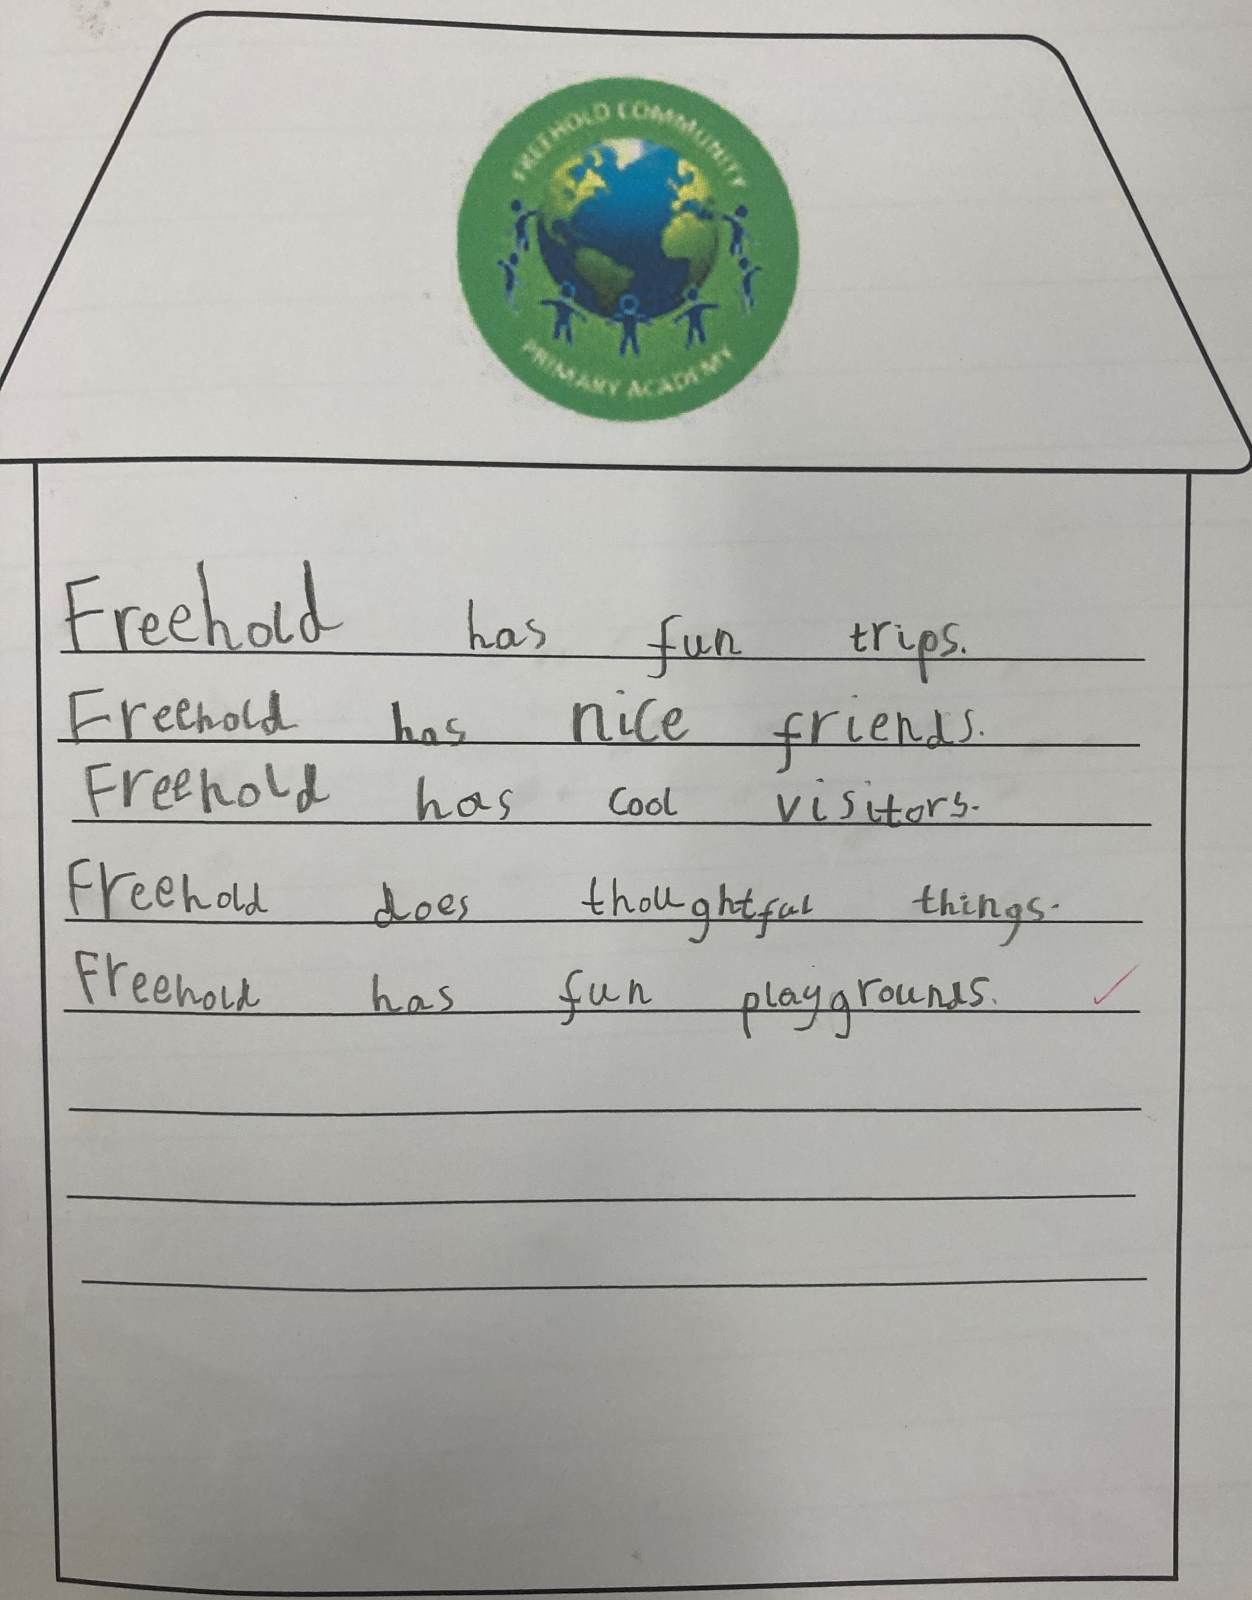 FREEHOLD COMMUNITY
PRIMARY ACADEMY
Freehold has fun trips.
Freehold has nice friends.
Freehold has cool visitors.
Freehold does thoughtful things.
Freehold has fun playgrounds.